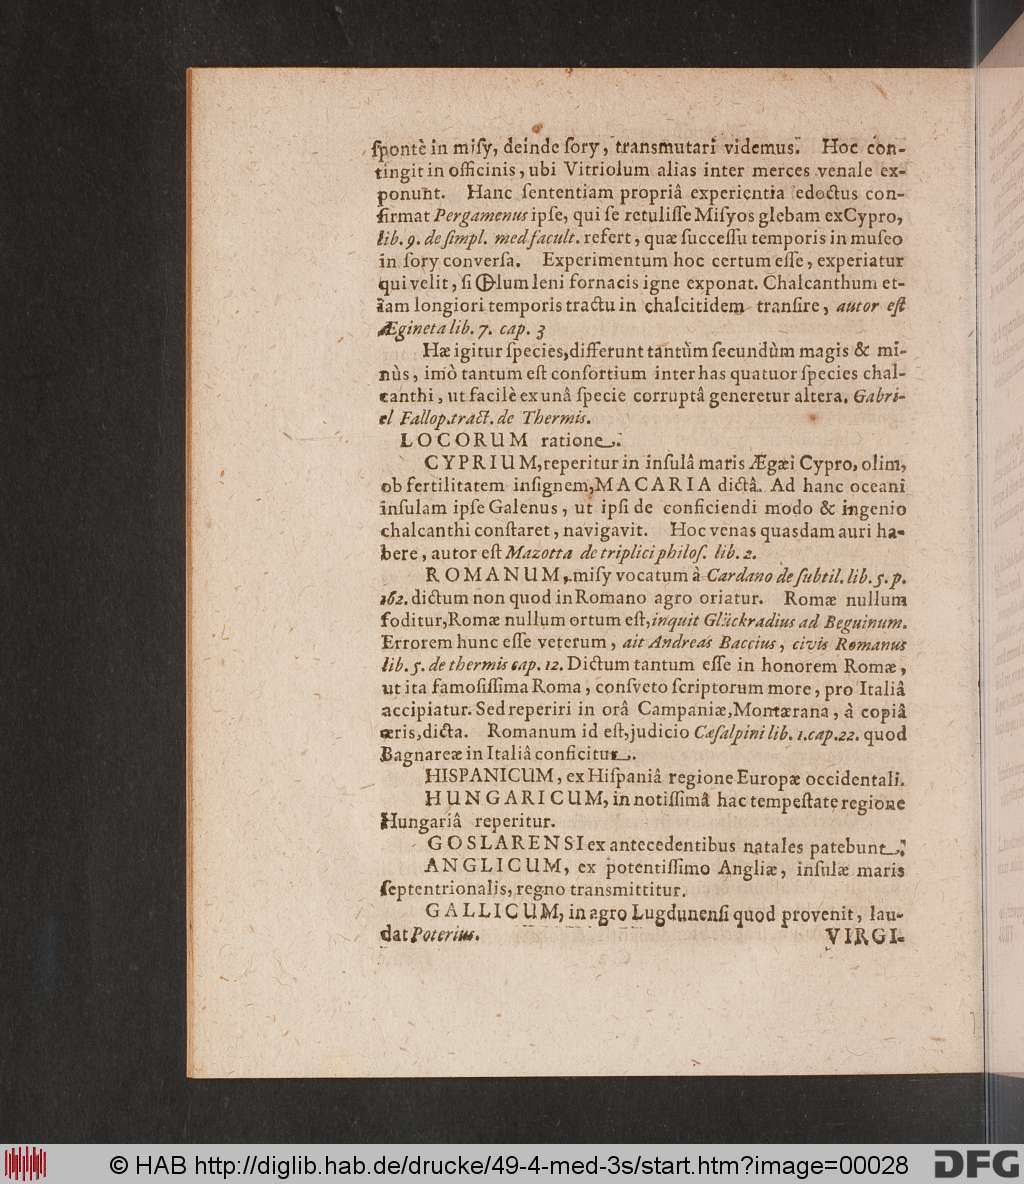 ſpontè in miſy, deinde ſory, transmutari videmus. Hoc con-
tingit in officinis, ubi Vitriolum alias inter merces venale ex-
ponunt. Hanc ſententiam propriâ experientia edoctus con-
firmat Pergamenus ipſe, qui ſe retuliſſe Miſyos glebam exCypro,
lib. 9. de ſimpl. med facult. refert, quæ ſucceſſu temporis in muſeo
in ſory converſa. Experimentum hoc certum eſſe, experiatur
qui velit, ſi lum leni fornacis igne exponat. Chalcanthum et-
iam longiori temporis tractu in chalcitidem tranſire, autor eſt
Ægineta lib. 7. cap. 3
Hæ igitur ſpecies, differunt tantùm ſecundùm magis & mi-
nùs, imò tantum eſt conſortium inter has quatuor ſpecies chal-
canthi, ut facilè ex unâ ſpecie corruptâ generetur altera. Gabri-
el Fallop. tract. de Thermis.
LOCORUM ratione.
CYPRIUM, reperitur in inſulâ maris Ægæi Cypro, olim,
ob fertilitatem inſignem, MACARIA dictâ. Ad hanc oceani
inſulam ipſe Galenus, ut ipſi de conficiendi modo & ingenio
chalcanthi conſtaret, navigavit. Hoc venas quasdam auri ha-
bere, autor eſt Mazotta de triplici philoſ. lib. 2.
ROMANUM, miſy vocatum à Cardano de ſubtil. lib. 5. p.
162. dictum non quod in Romano agro oriatur. Romæ nullum
foditur, Romæ nullum ortum eſt, inquit Glückradius ad Beguinum.
Errorem hunc eſſe veterum, ait Andreas Baccius, civis Romanus
lib. 5. de thermis cap. 12. Dictum tantum eſſe in honorem Romæ,
ut ita famoſiſſima Roma, conſveto ſcriptorum more, pro Italiâ
accipiatur. Sed reperiri in orâ Campaniæ, Montærana, à copiâ
æris, dicta. Romanum id eſt, judicio Cæſalpini lib. 1. cap. 22. quod
Bagnareæ in Italiâ conficitur.
HISPANICUM, ex Hiſpaniâ regione Europæ occidentali.
HUNGARICUM, in notiſſimâ hac tempeſtate regione
Hungariâ reperitur.
GOSLARENSI ex antecedentibus natales patebunt.
ANGLICUM, ex potentiſſimo Angliæ, inſulæ maris
ſeptentrionalis, regno transmittitur.
GALLICUM, in agro Lugdunenſi quod provenit, lau-
dat Poterius.
VIRGI-
© HAB http://diglib.hab.de/drucke/49-4-med-3s/start.htm?image=00028
DFG